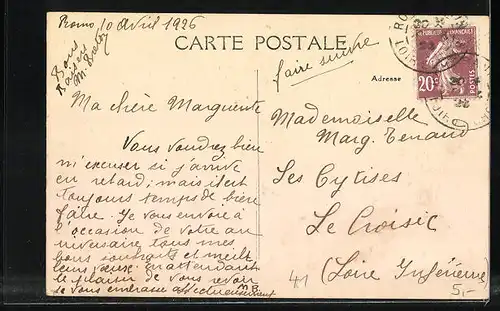 10 Avril 1926
Bons
Baisers
CARTE POSTALE
faire suivre
Adresse
REPUBLIQUE FRANÇAISE
20c
POSTES
Ma chère Marguerite
Vous voudrez bien
m'excuser si j'arrive
en retard; mais il est
toujours temps de bien
faire. Je vous envoie à
l'occasion de votre an
niversaire tous mes
bons souhaits et meil
leurs vœux. en attendant
le plaisir de vous revoir
je vous embrasse affectueusement
M B
Mademoiselle
Marg. Tenaud
Les Cytises
Le Croisic
(Loire Inférieure)
41
5,-